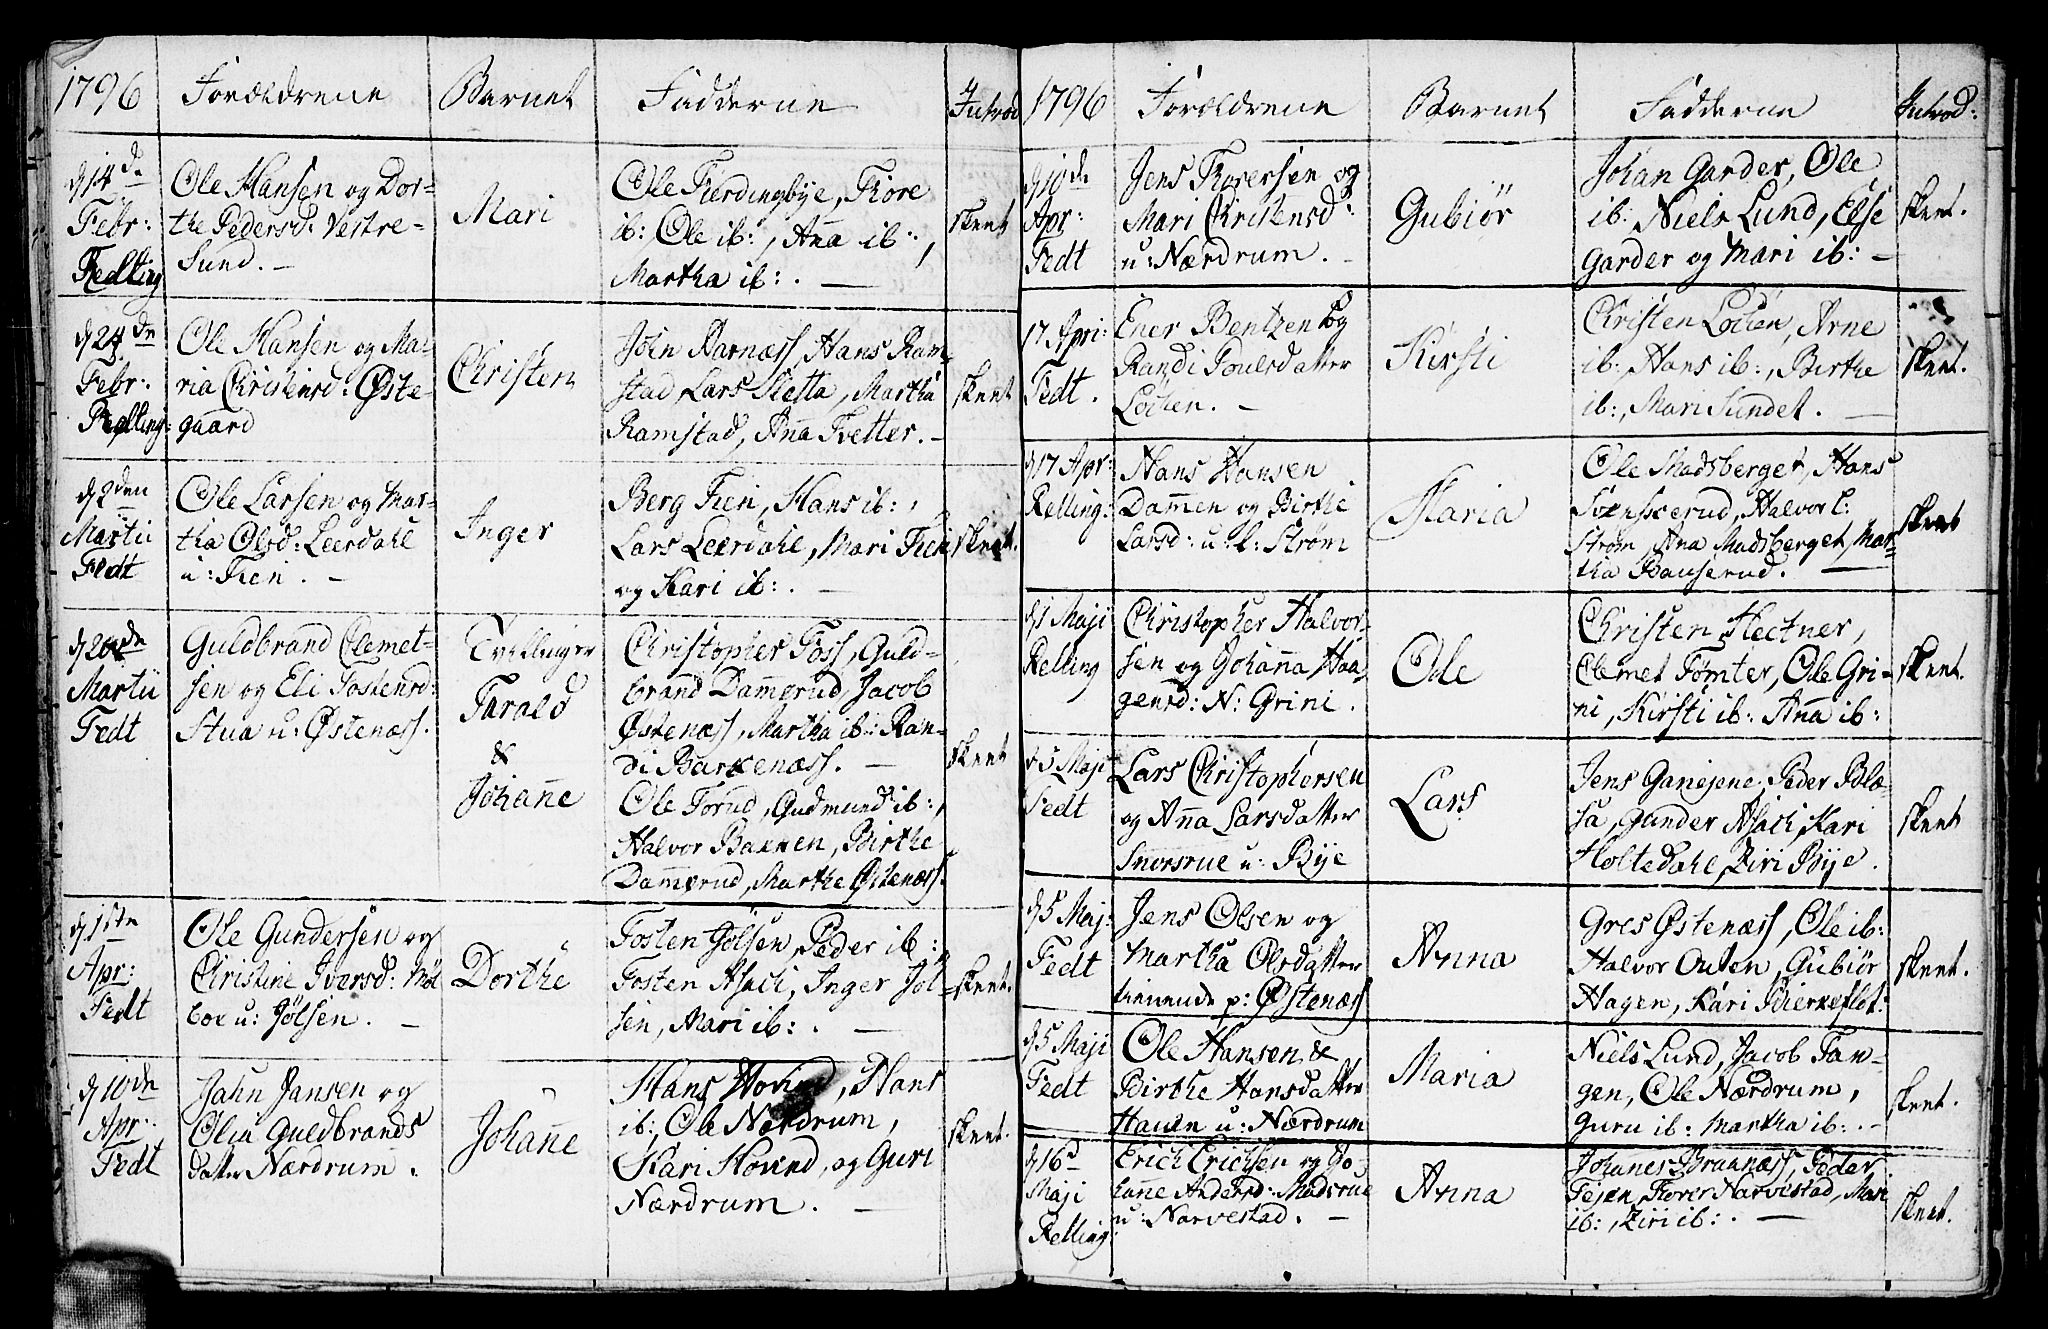 1796 Forældrene Barnet Fadderne Introd
d 14de
Febr:
Relling
Ole Hansen og Dor-
the Pedersd: Vestre-
Sund. —
Mari
Ole Fierdingbye, Tore
ib: Ole ib:, Aña ib:,
Martha ib: . —
skeet
d 24de
Febr:
Relling:
Ole Hansen og Ma-
ria Christensd: Øste-
gaard
Christen
John Harnæss, Hans Ram-
stad, Lars Sletta, Martha
Ramstad, Aña Tvetter. —
skeet
d 2den
Martii
Fedt
Ole Larsen og Mar-
tha Olsd: Leerdahl
u: Fieri. —
Inger
Berg Fieri, Hans ib:,
Lars Leerdahl, Mari Fieri
og Kari ib: . —
skeet.
d 20de
Martii
Fedt
Guldbrand Clemet-
sen og Eli Tostensd:
Stua u: Østenæss.
Tvillinger
Tarald
&
Johañe
Christopher Foss, Guld-
brand Dam̄erud, Jacob
Østenæss, Martha ib: Ran-
di Barkenæss. —
Ole Torud, Gudmund ib:,
Halvor Bakken, Birthe
Dam̄erud, Marthe Østenæss.
skeet
d 1ste
Apr:
Fedt
Ole Gundersen og
Christine Iversd: Møl
u: Jølsen. —
Dorthe
Tosten Jølsen, Peder ib:,
Tosten Asach, Inger Jøl-
sen, Mari ib: . —
skeet.
d 10de
Apr:
Fedt
Jahn Jansen og
Olia Guldbrands
datter Nærdrum.
Johañe
Hans Hovind, Hans
ib:, Ole Nærdrum,
Kari Hovind, og Guri
Nærdrum. —
skeet.
1796 Forældrene Barnet Fadderne Introd:
d 10de
Apr:
Fedt
Jens Thoresen og
Mari Christensd:
u: Nærdrum. —
Gubiør
Johan Garder, Ole
ib: Niels Lund, Else
Garder og Mari ib: —
skeet.
17 Apri:
Fedt.
Ener Bentzen og
Randi Poulsdatter
Løchen. —
Kirsti
Christen Løchen, Arne
ib: Hans ib:, Birthe
ib:, Mari Sundet. —
skeet.
d 17 Apr:
Relling:
Hans Hansen
Dam̄en og Birthe
Larsd: u: l: Strøm
Maria
Ole Madsberget, Hans
Halvor l:
Strøm, Ana Madsberget, Mar-
tha Bauserud. —
skeet
d 1 Maji
Relling
Christopher Halvor-
sen og Johaña Haa-
gensd: N: Grini.
Ole
Christen Flectner,
Clemet Tømter, Ole Gri-
ni, Kirsti ib: Aña ib:
skeet.
d 5 Maji
Fedt
Lars Christophersen
og Aña Larsdatter
Snorsrue u: Bye
Lars
Jens Peder Blæ-
sa, Gunder Asach, Kari
Holtedahl, Ziri Bye.
skeet
d 5 Maj:
Fedt
Jens Olsen og
Martha Olsdatter
tienende p: Østenæss
Anna
Gres Østenæss, Ole ib:
Halvor Outen, Gubiør
Hagen, Kari Bierkeflet:
skeet.
d 5 Maji
Fedt
Ole Hansen &
Birthe Hansdatter
Hauen u: Nærdrum
Maria
Niels Lund, Jacob Tan-
gen, Ole Nærdrum,
Guru ib: Martha ib: . —
skeet.
d 16d
Maji
Relling:
Erich Erichsen og Jo-
hañe Andersd: Madsrue
u: Narvestad. —
Anna
Johanes Braanæss, Peder
Tejen, Thorer Narvestad, Mari
ib:, Ziri ib: . —
skeet.